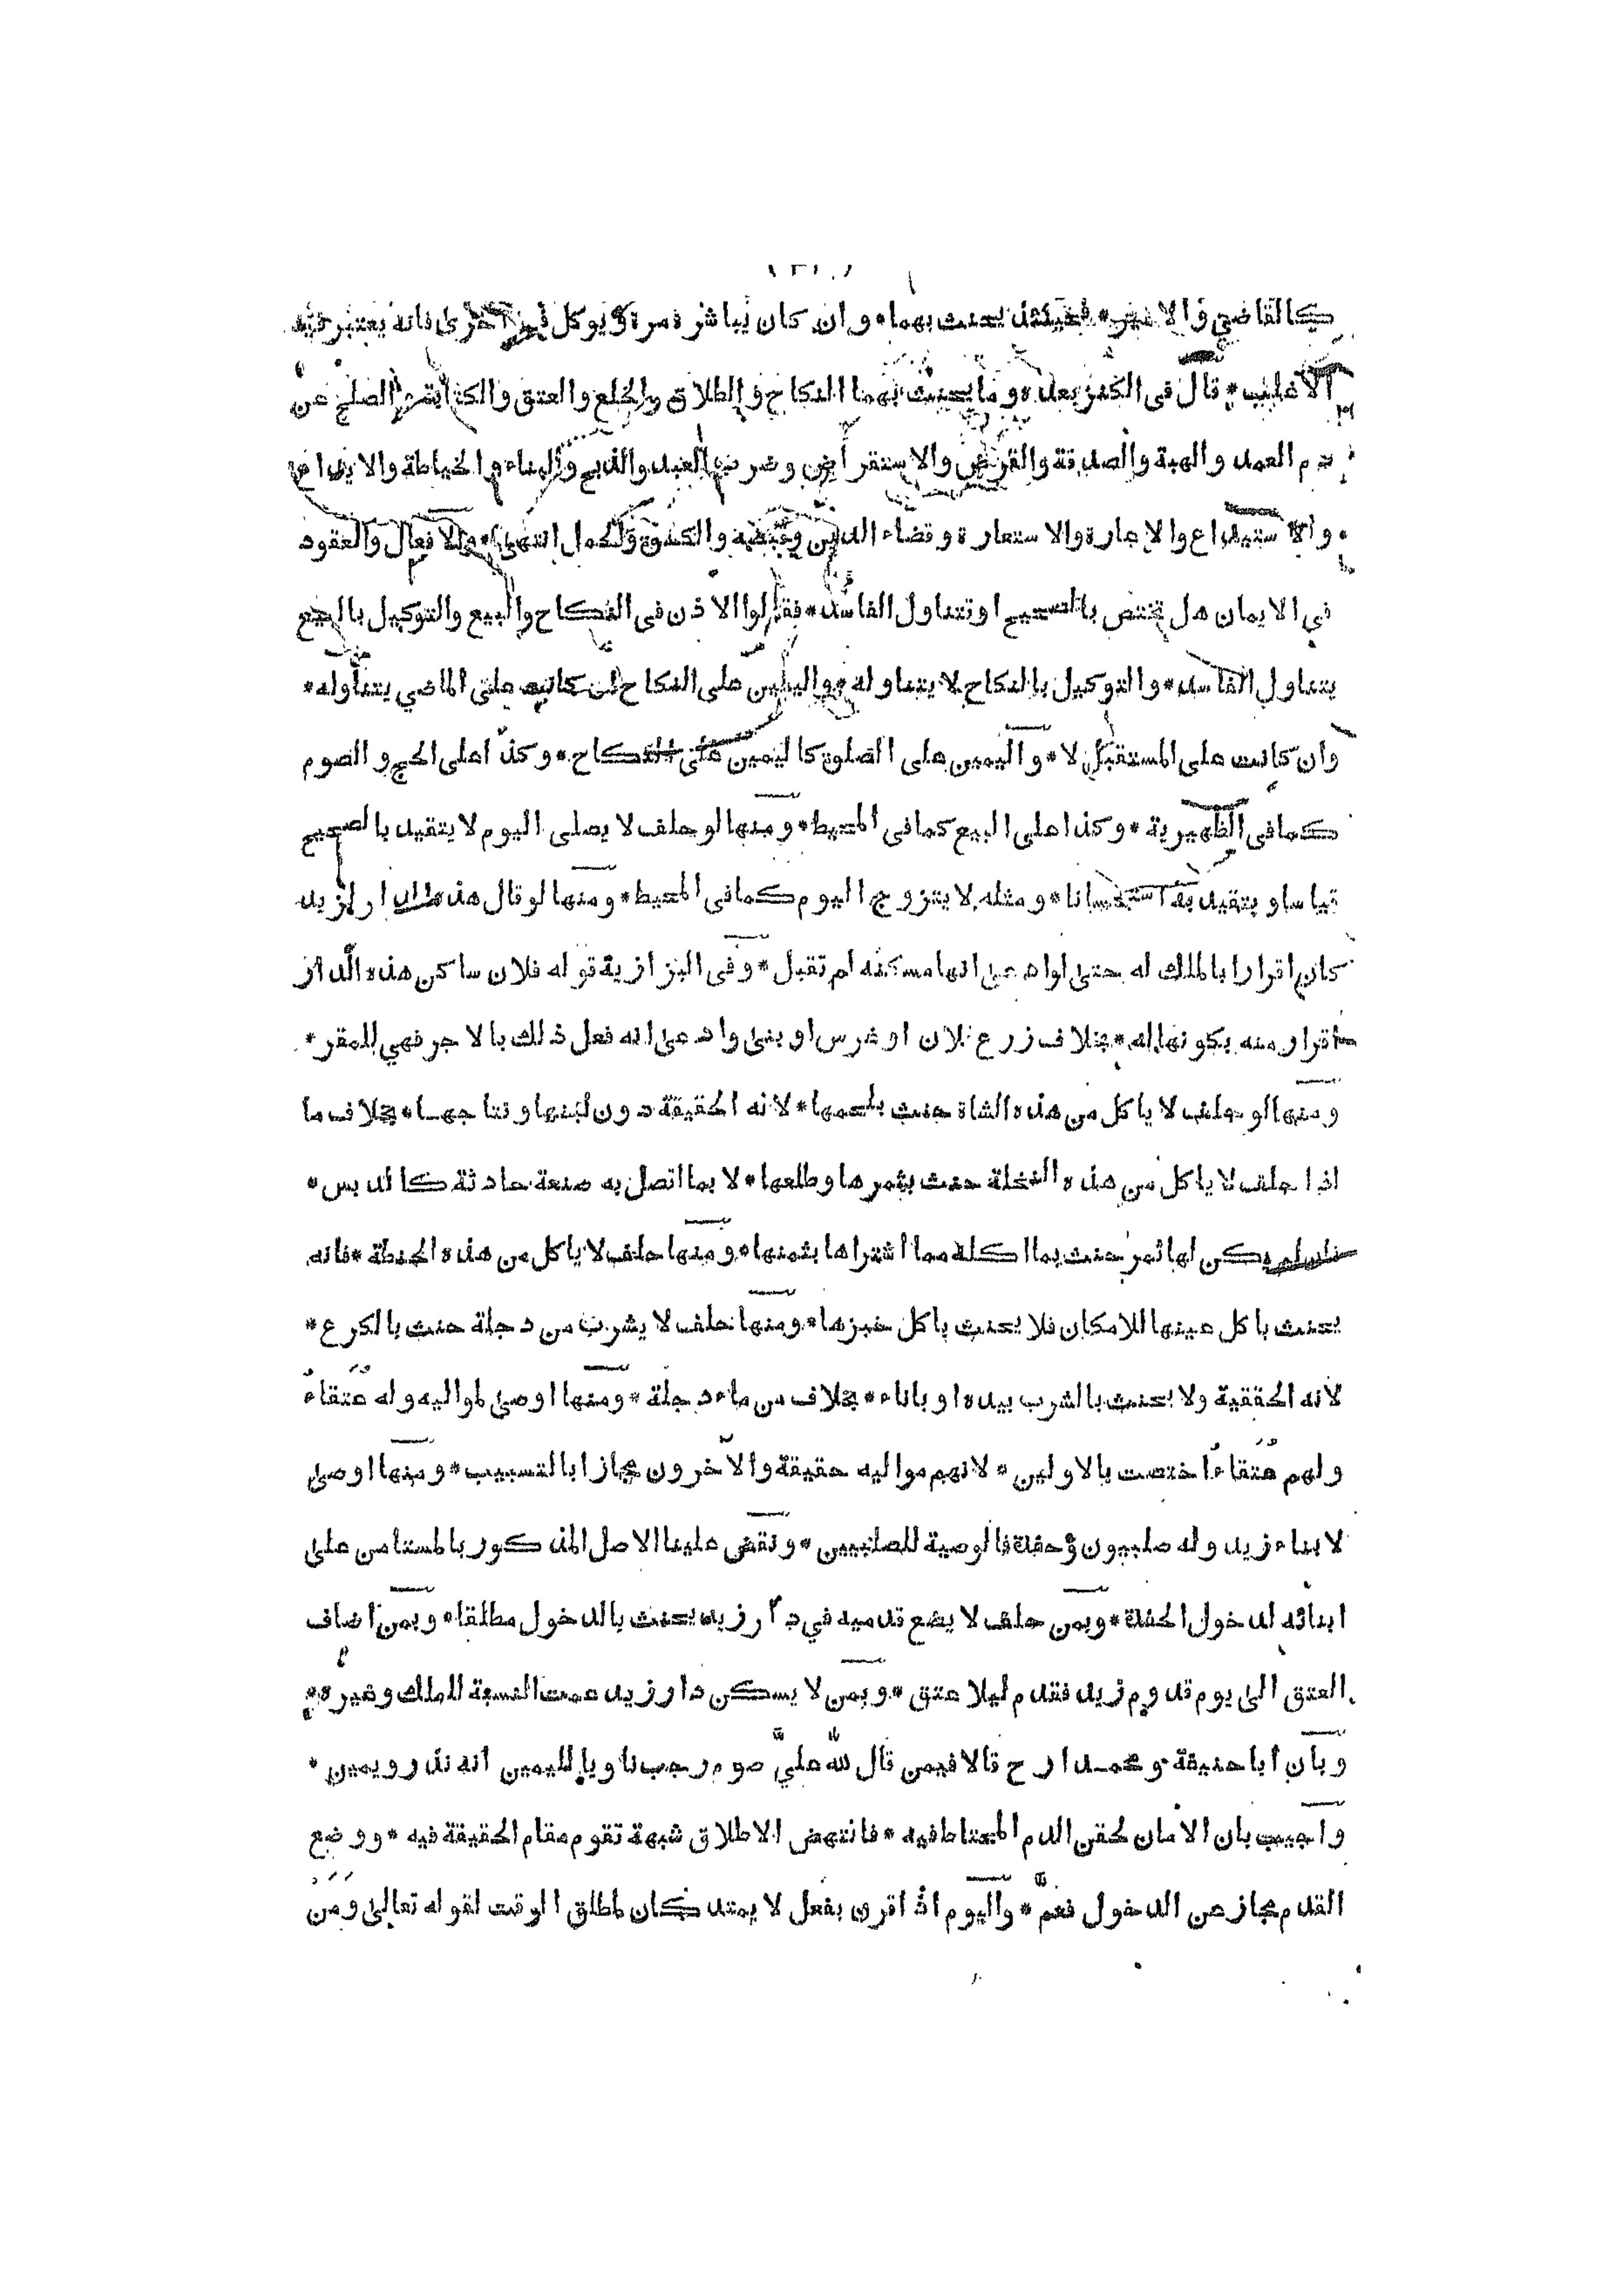 كالقاضي والامير * فحينئذ يحنث بهما * وان كان يباشره مرة ويوكل فيه اخرى فانه يعتبر فيه
الاغلب * قال فى الكنز بعده وما يحنث بهما النكاح والطلاق والخلع والعتق والكتابة والصلح عن
دم العمد والهبة والصدقة والقرض والاستقراض وضرب العبد والذبح والبناء والخياطة والايداع
والاستيداع والاعارة والاستعارة وقضاء الدين وقبضه والكسوة والحمل انتهى * والافعال والعقود
في الايمان هل تختص بالصحيح او تتناول الفاسد * فقالوا الاذن فى النكاح والبيع والتوكيل بالبيع
يتناول الفاسد * والتوكيل بالنكاح لا يتناوله * واليمين على النكاح ان كانت على الماضي يتناوله *
وان كانت على المستقبل لا * واليمين على الصلوة كاليمين على النكاح * وكذا على الحج والصوم
كما فى الظهيرية * وكذا على البيع كما فى المحيط * ومنها لو حلف لا يصلى اليوم لا يتقيد بالصحيح
قياسا ويتقيد به استحسانا * ومثله لا يتزوج اليوم كما فى المحيط * ومنها لو قال هذه الدار لزيد
كان اقرارا بالملك له حتى لو ادعى انها مسكنه لم تقبل * وفى البزازية قوله فلان ساكن هذه الدار
اقرار منه بكونها له * بخلاف زرع فلان او غرس او بنى وادعى انه فعل ذلك بالاجر فهي للمقر *
ومنها لو حلف لا ياكل من هذه الشاة حنث بلحمها * لانه الحقيقة دون لبنها ونتاجها * بخلاف ما
اذا حلف لا ياكل من هذه النخلة حنث بثمرها وطلعها * لا بما اتصل به صنعة حادثة كالدبس *
فان لم يكن لها ثمر حنث بما اكله مما اشتراها بثمنها * ومنها حلف لا ياكل من هذه الحنطة * فانه
يحنث باكل عينها للامكان فلا يحنث باكل خبزها * ومنها حلف لا يشرب من دجلة حنث بالكرع *
لانه الحققية ولا يحنث بالشرب بيده او باناء * بخلاف من ماء دجلة * ومنها اوصى لمواليه وله عُتَقاءُ
ولهم عُتَقاءُ اختصت بالاولين * لانهم مواليه حقيقة والآخرون مجازا بالتسبيب * ومنها اوصى
لابناء زيد وله صلبيون وحفدة فالوصية للصلبيين * ونقض علينا الاصل المذكور بالمستامن على
ابنائه لدخول الحفدة * وبمن حلف لا يضع قدميه في دار زيد يحنث بالدخول مطلقا * وبمن اضاف
العتق الى يوم قدوم زيد فقدم ليلا عتق * وبمن لا يسكن دار زيد عمت النسبة للملك وغيره *
وبأن أبا حنيفة ومحمدا رح قالا فيمن قال لله عليّ صوم رجب ناويا لليمين انه نذر ويمين *
واجيب بان الامان لحقن الدم المحتاط فيه * فانتهض الاطلاق شبهة تقوم مقام الحقيقة فيه * ووضع
القدم مجاز عن الدخول فعمّ * واليوم اذا اقرن بفعل لا يمتد كان لمطلق الوقت لقوله تعالى وَمَنْ